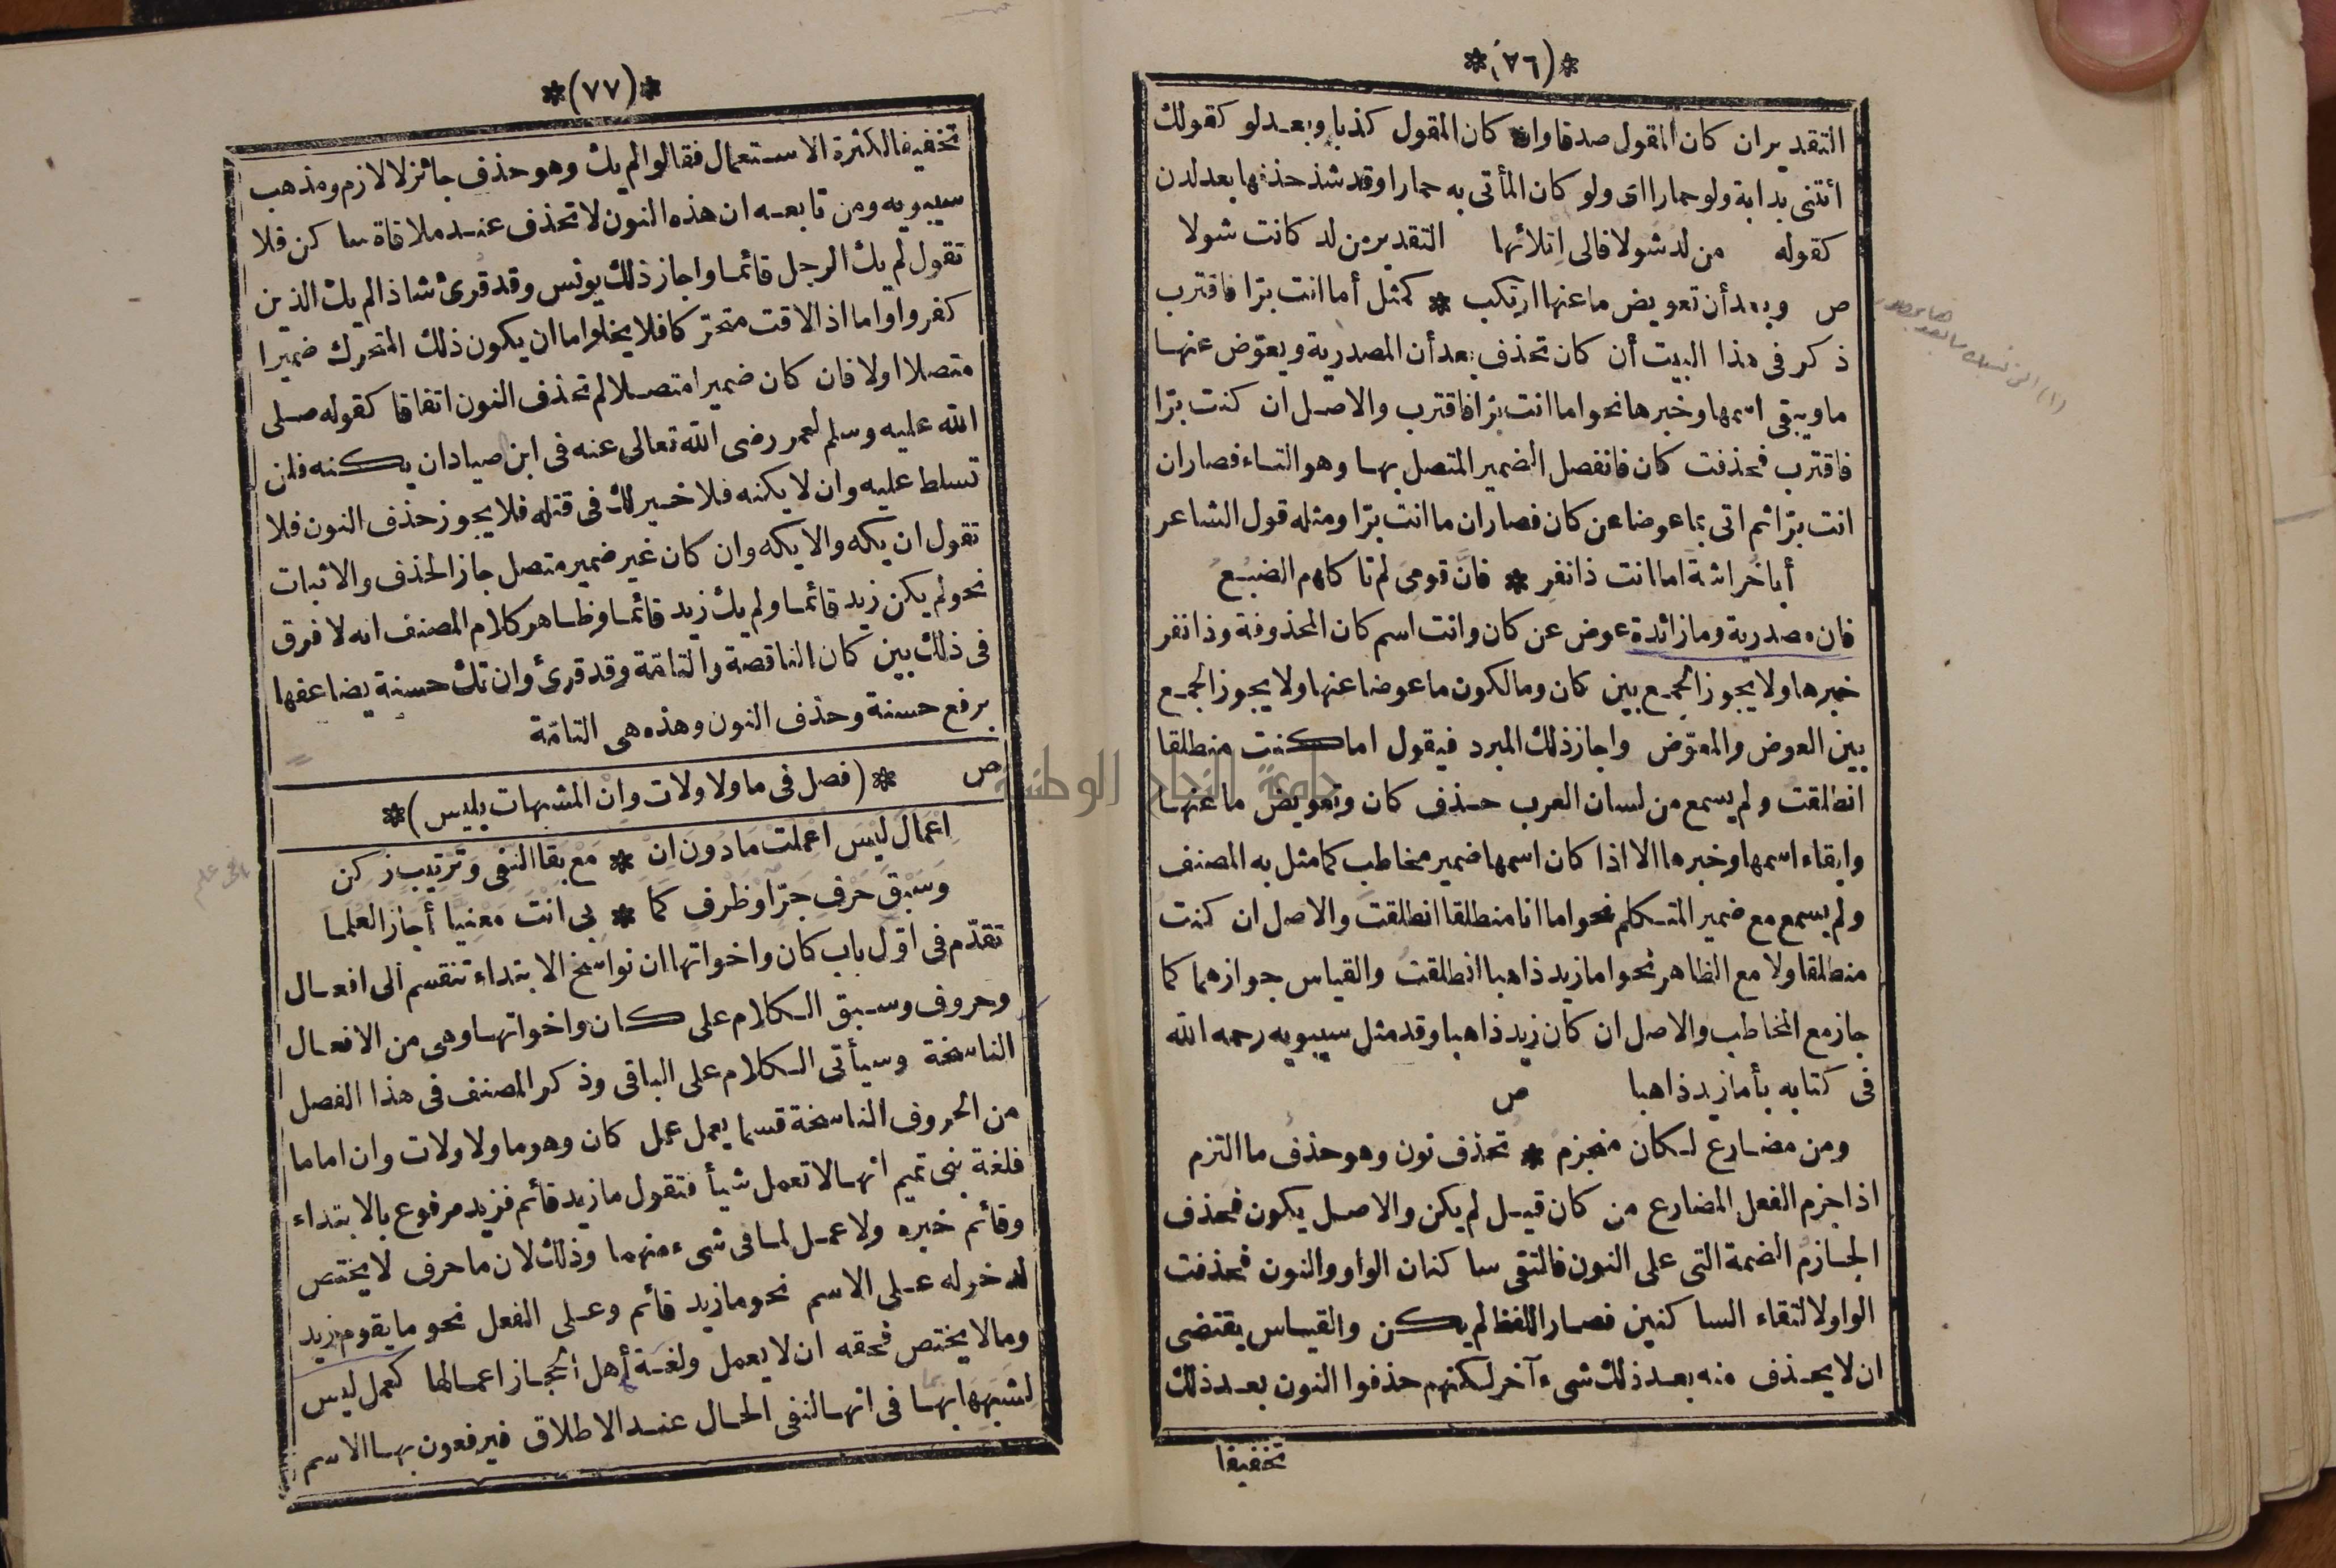 *(٧٦)*
التقدير ان كان المقول صدقا وان كان المقول كذبا وبعد لو كقولك
ائتنى بدابة ولو حمارا اى ولو كان المأتى به حمارا وقد شذ حذفها بعد لدن
كقوله من لد شولا فالى اتلائها التقدير من لد كانت شولا
ص وبعد أن تعويض ما عنها ارتكب * كمثل أما انت برّا فاقترب
ذكر فى هذا البيت أن كان تحذف بعد أن المصدرية ويعوّض عنها
ما ويبقى اسمها وخبرها نحو اما انت برّا فاقترب والاصل ان كنت برّا
فاقترب فحذفت كان فانفصل الضمير المتصل بها وهو التاء فصار ان
انت برّا ثم اتى بما عوضا عن كان فصار ان ما انت برّا ومثله قول الشاعر
أبا خراشة اما انت ذا نفر * فانّ قومى لم تأكلهم الضبع
فان مصدرية وما زائدة عوض عن كان وانت اسم كان المحذوفة وذا نفر
خبرها ولا يجوز الجمع بين كان وما لكون ما عوضا عنها ولا يجوز الجمع
بين العوض والمعوّض واجاز ذلك المبرد فيقول اما كنت منطلقا
انطلقت ولم يسمع من لسان العرب حذف كان وتعويض ما عنها
وابقاء اسمها وخبرها الا اذا كان اسمها ضمير مخاطب كما مثل به المصنف
ولم يسمع مع ضمير المتكلم نحو اما انا منطلقا انطلقت والاصل ان كنت
منطلقا ولا مع الظاهر نحو اما زيد ذاهبا انطلقت والقياس جوازهما كما
جاز مع المخاطب والاصل ان كان زيد ذاهبا وقد مثل سيبويه رحمه الله
فى كتابه بأما زيد ذاهبا ص
ومن مضارع لكان منجزم * تحذف نون وهو حذف ما التزم
اذا جزم الفعل المضارع من كان قيل لم يكن والاصل يكون فحذف
الجازم الضمة التى على النون فالتقى ساكنان الواو والنون فحذفت
الواو لالتقاء الساكنين فصار اللفظ لم يكن والقياس يقتضى
ان لا يحذف منه بعد ذلك شىء آخر لكنهم حذفوا النون بعد ذلك
تخفيفا
*(٧٧)*
تخفيفا لكثرة الاستعمال فقالوا لم يك وهو حذف جائز لا لازم ومذهب
سيبويه ومن تابعه ان هذه النون لا تحذف عند ملاقاة ساكن فلا
تقول لم يك الرجل قائما واجاز ذلك يونس وقد قرئ شاذا لم يك الذين
كفروا واما اذا لاقت متحرّكا فلا يخلو اما ان يكون ذلك المتحرك ضميرا
متصلا اولا فان كان ضميرا متصلا لم تحذف النون اتفاقا كقوله صلى
الله عليه وسلم لعمر رضى الله تعالى عنه فى ابن صياد ان يكنه فلن
تسلط عليه وان لا يكنه فلا خير لك فى قتله فلا يجوز حذف النون فلا
تقول ان يكه والا يكه وان كان غير ضمير متصل جاز الحذف والاثبات
نحو لم يكن زيد قائما ولم يك زيد قائما وظاهر كلام المصنف انه لا فرق
فى ذلك بين كان الناقصة والتامّة وقد قرئ وان تك حسنة يضاعفها
برفع حسنة وحذف النون وهذه هى التامّة
ص *(فصل فى ما ولا ولات وان المشبهات بليس)*
اعمال ليس اعملت ما دون ان * مع بقا النفى وترتيب زكن
وسبق حرف جرّ او ظرف كما * بى انت معنيّا أجاز العلما
تقدّم فى اوّل باب كان واخواتها ان نواسخ الابتداء تنقسم الى افعال
وحروف وسبق الكلام على كان واخواتها وهى من الافعال
الناسخة وسيأتى الكلام على الباقى وذكر المصنف فى هذا الفصل
من الحروف الناسخة قسما يعمل عمل كان وهو ما ولا ولات وان اما ما
فلغة بنى تميم انها لا تعمل شيأ فتقول ما زيد قائم فزيد مرفوع بالابتداء
وقائم خبره ولا عمل لما فى شىء منهما وذلك لان ما حرف لا يختص
لدخوله على الاسم نحو ما زيد قائم وعلى الفعل نحو ما يقوم زيد
وما لا يختص فحقه ان لا يعمل ولغة أهل الحجاز اعمالها كعمل ليس
لشبهها بها فى انها لنفى الحال عند الاطلاق فيرفعون بها الاسم
جامعة النجاح الوطنية